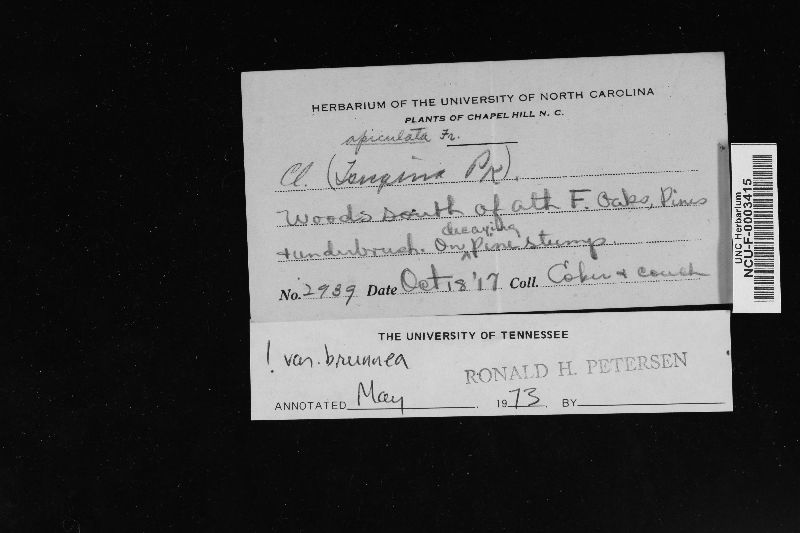 HERBARIUM OF THE UNIVERSITY OF NORTH CAROLINA
PLANTS OF CHAPEL HILL N. C.
apiculata Fr.
Cl. (Pk).
Woods south of ath F. Oaks, Pines
& underbrush. On decaying Pine stump.
No. 2939 Date Oct 18 '17 Coll. Coker & Couch
THE UNIVERSITY OF TENNESSEE
! var. brunnea
RONALD H. PETERSEN
ANNOTATED May 1973. BY
UNC Herbarium
NCU-F-0003415